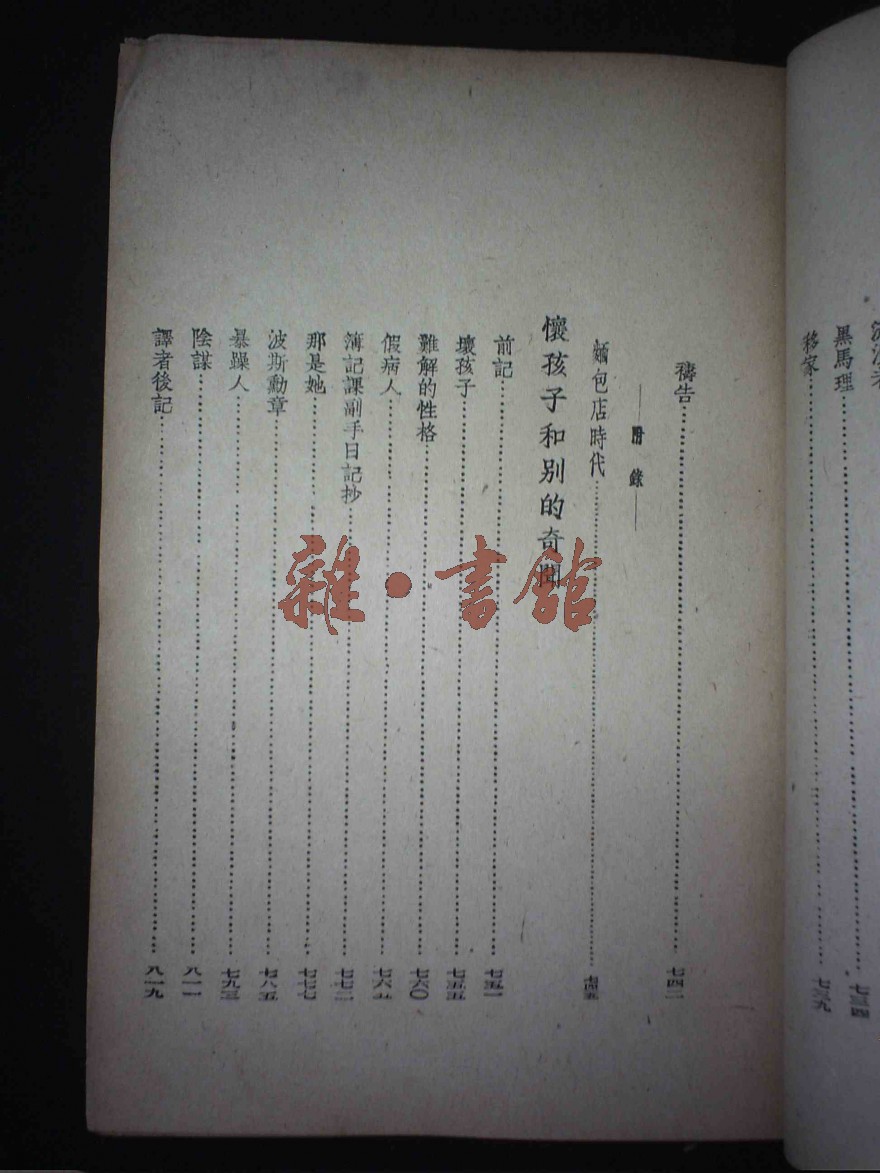 黑馬理……七三四
移家……七三九
禱告……七四二
——附錄——
麵包店時代……七四五
懷孩子和別的奇聞
前記……七五一
壞孩子……七五五
難解的性格……七六〇
假病人……七六七
簿記課副手日記抄……七七二
那是她……七七七
波斯勳章……七八五
暴躁人……七九三
陰謀……八一一
譯者後記……八一九
雜·書館